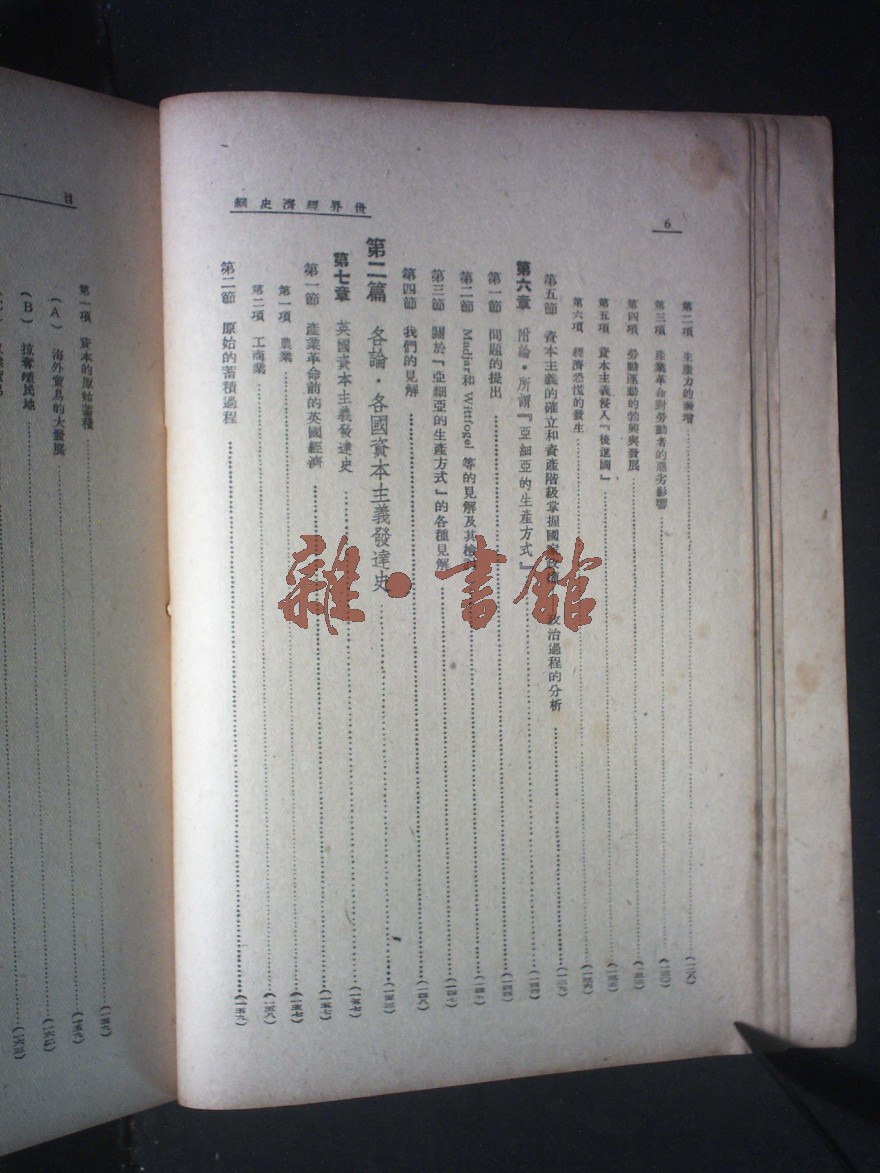 6
世界經濟史綱
第二項 生產力的漸增
第三項 產業革命對勞動者的惡劣影響
第四項 勞動運動的勃興與發展
第五項 資本主義侵入『後進國』
第六項 經濟恐慌的發生
第五節 資本主義的確立和資產階級掌握國家政權 政治過程的分析
第六章 附論・所謂『亞細亞的生產方式』
第一節 問題的提出
第二節 Madjar和Wittfogel等的見解及其檢
第三節 關於『亞細亞的生產方式』的各種見解
第四節 我們的見解
第二篇 各論・各國資本主義發達史
第七章 英國資本主義發達史
第一節 產業革命前的英國經濟
第一項 農業 (一五七)
第二項 工商業 (一五八)
第二節 原始的蓄積過程 (一五九)
目
第一項 資本的原始蓄積
(A) 海外貿易的大發展
(B) 掠奪殖民地
雜・書館